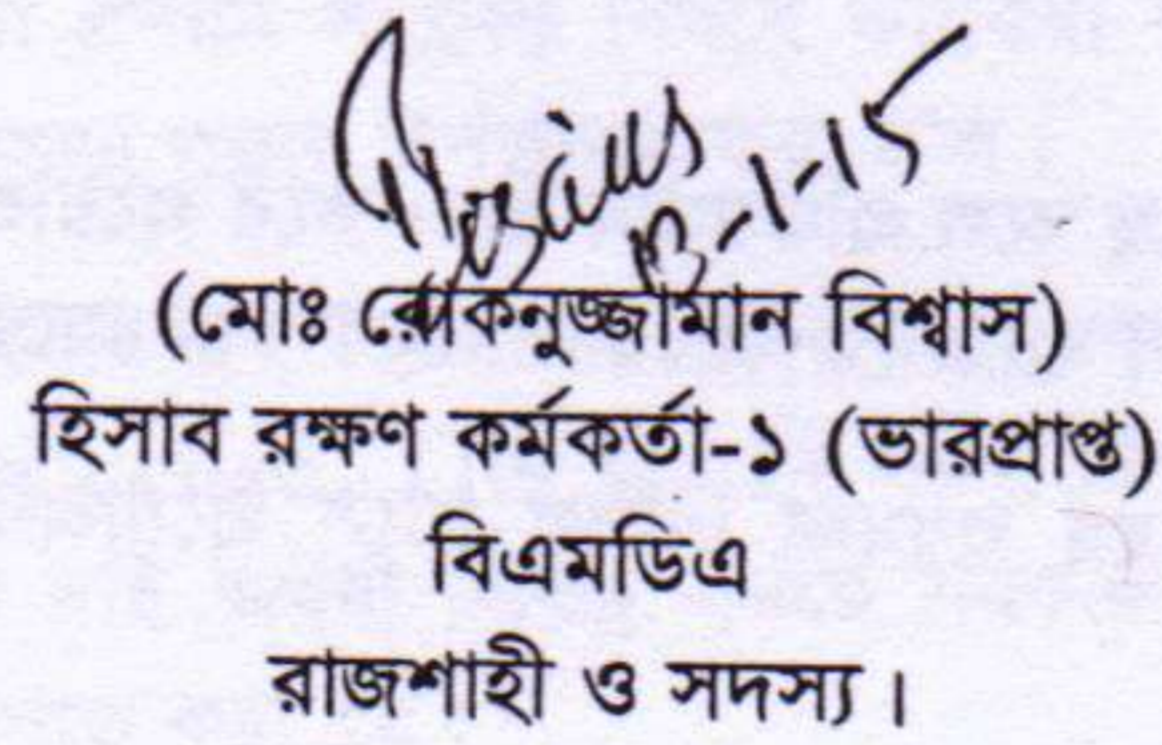 13-1-15
(মোঃ রোকনুজ্জামান বিশ্বাস)
হিসাব রক্ষণ কর্মকর্তা-১ (ভারপ্রাপ্ত)
বিএমডিএ
রাজশাহী ও সদস্য।